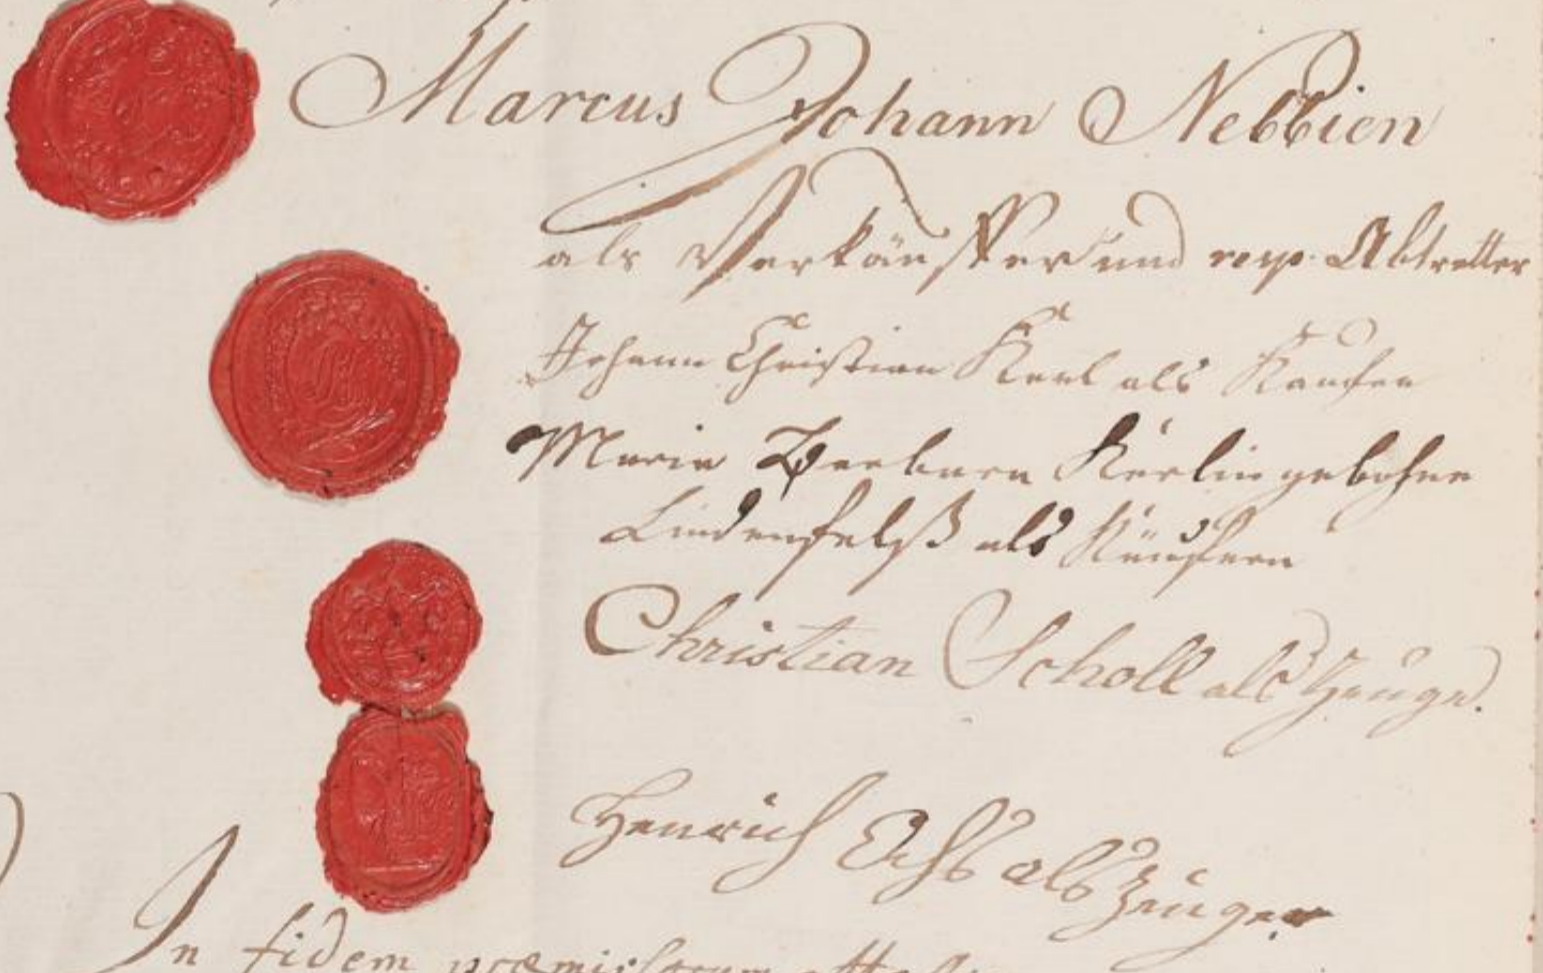 Marcus Johann Nebbien
als Verkäuffer und resp. Abtretter
Johann Christian Kerl als Kaufer
Maria Barbara Kerlin gebohrne
Lindenfelß als Käuferin
Christian Scholl als Zeuge.
Henrich Ochs als Zeuge
In fidem præmissorum